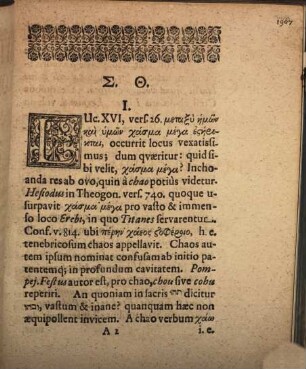 1967
Σ. Θ.
I.
LUc. XVI, vers. 26. μεταξὺ ἡμῶν
καὶ ὑμῶν χάσμα μέγα ἐστήρι-
κται, occurrit locus vexatissi-
mus; dum quæritur: quid si-
bi velit, χάσμα μέγα? Incho-
anda res ab ovo, quin à chao potiùs videtur.
Hesiodus in Theogon. vers. 740. quoque u-
surpavit χάσμα μέγα pro vasto & immen-
so loco Erebi, in quo Titanes servarentur.
Conf. v. 814. ubi πέρην χάεος ζοφεροῖο, h. e.
tenebricosum chaos appellavit. Chaos au-
tem ipsum nominat confusam ab initio pa-
tentemq; in profundum cavitatem. Pom-
pej. Festus autor est, pro chao, chou sive cohu
reperiri. An quoniam in sacris תהו dicitur
ובהו, vastum & inane? quanquam hæc non
æquipollent invicem. A chao verbum χάω
A 2 i.e.